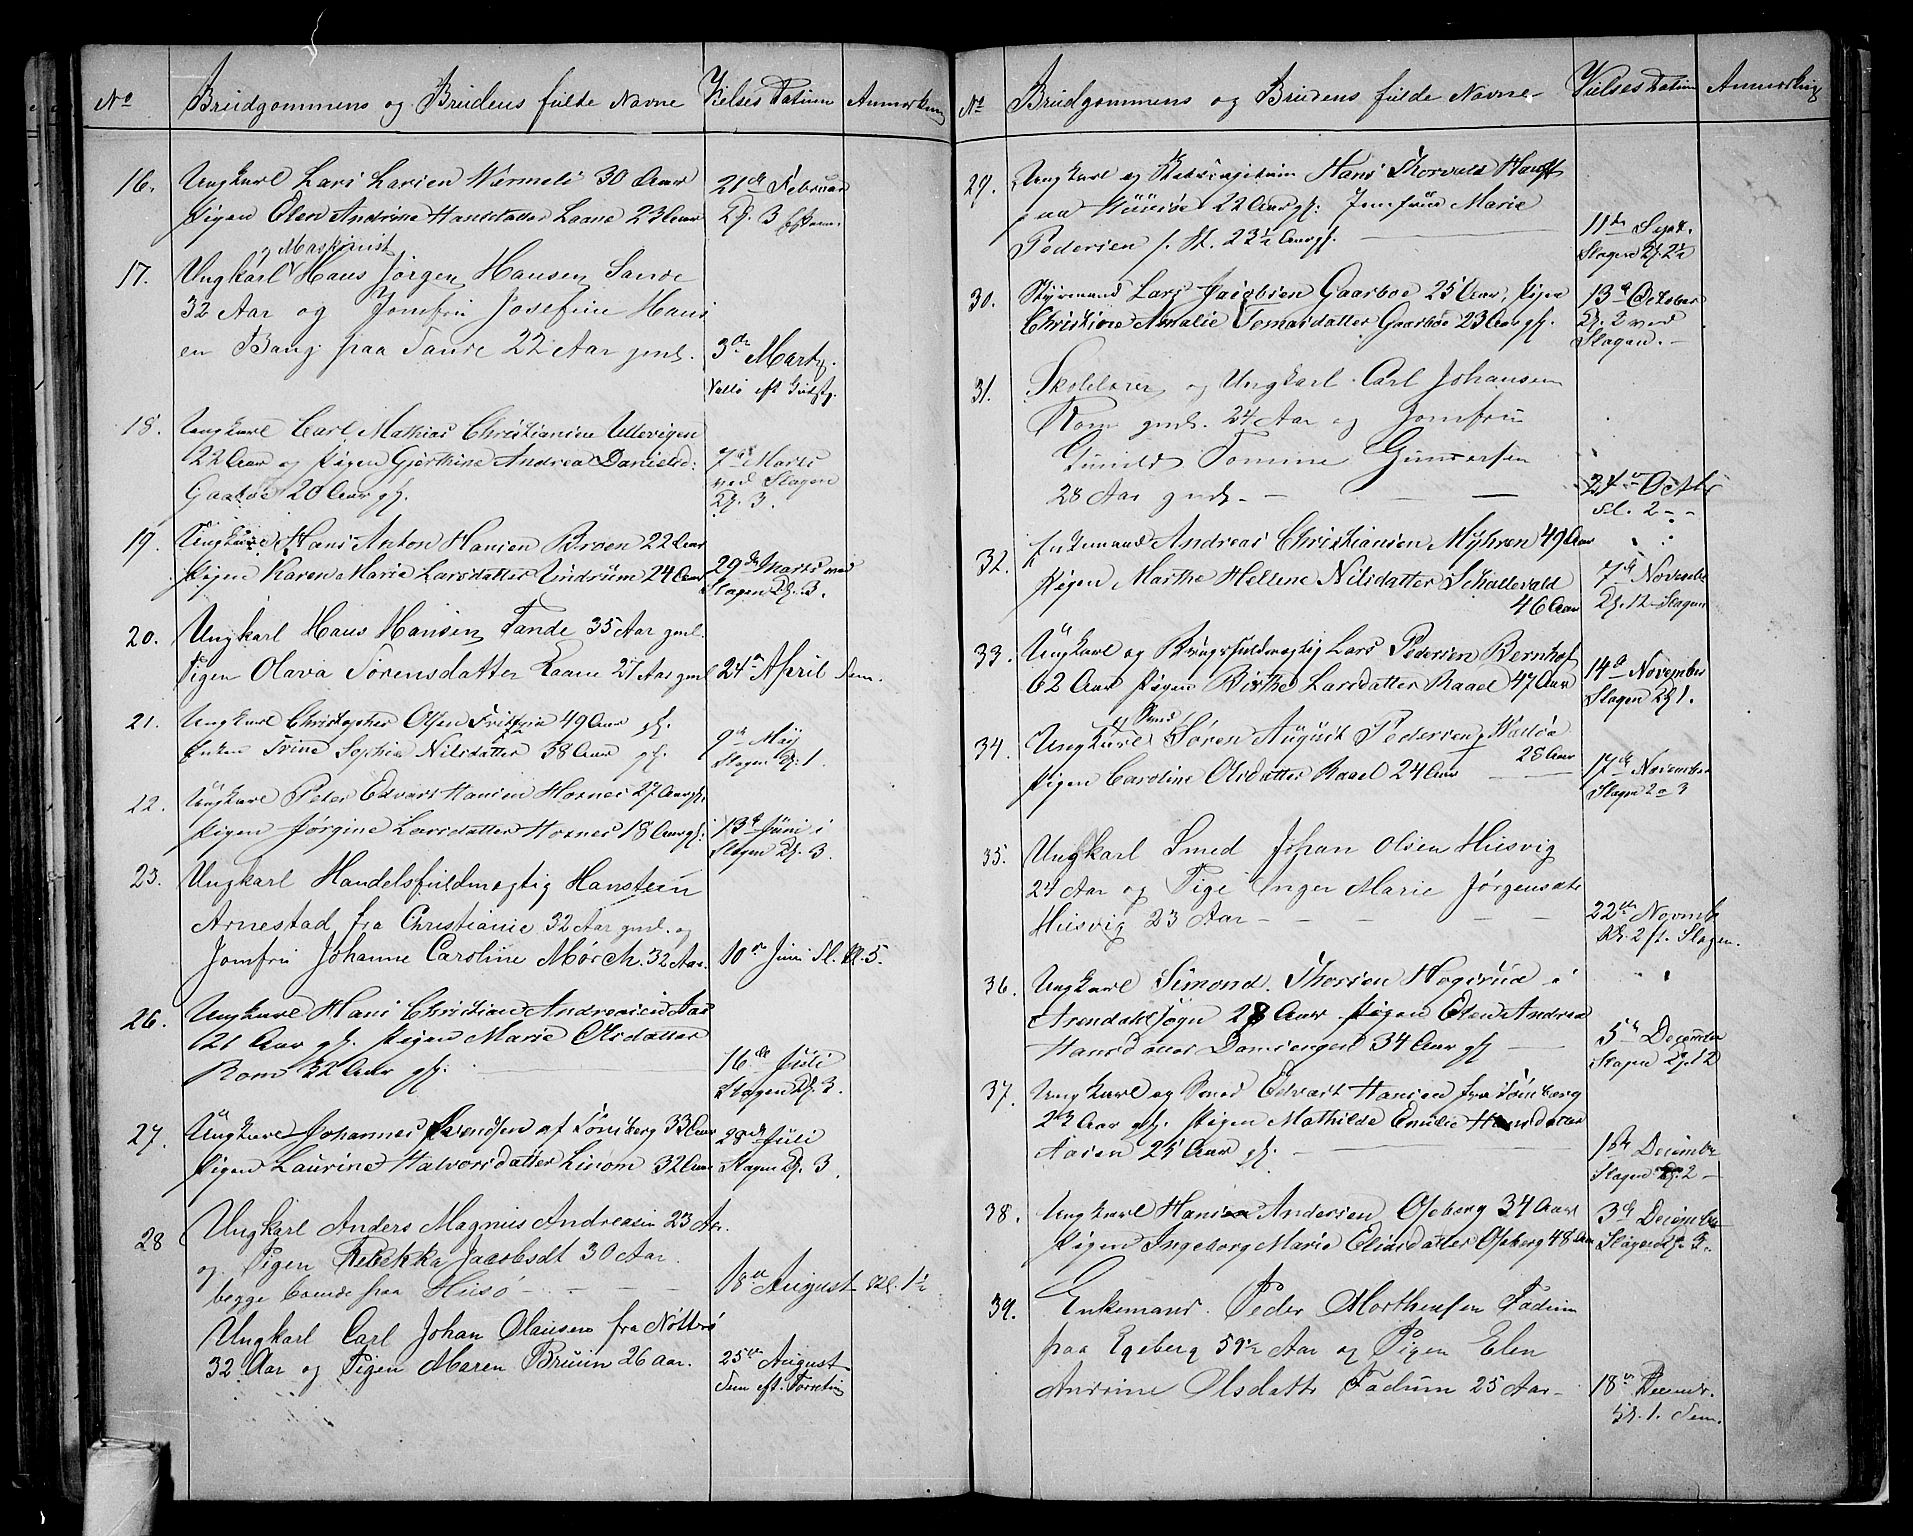 No
Brudgommens og Brudens fulde Navne
Vielses Datum
Anmerkning
16.
Ungkarl Lars Larsen Vermeli 30 Aar
21de Februar
Pigen Elen Andrine Hansdatter Laane 23 Aar
Kl. 3
og Maskinist
17.
Ungkarl Hans Jørgen Hansen Sande
32 Aar og Jomfru Josefine Hans
en Bang paa Sande 22 Aar gml.
3de Marts.
Vallö eft
18.
Ungkarl Carl Mathias Christiansen Ullevigen
22 Aar og Pigen Gjerthine Andrea Danielsd:
7de Marts
ved Slagen
Gaarboe 20 Aar gl.
Kl. 3.
19.
Ungkarl Hans Anton Hansen Broen 22 Aar
Pigen Karen Marie Larsdatter Undrum 24 Aar
29de Marts ved
Slagen Kl. 3.
20.
Ungkarl Hans Hansen Tande 35 Aar gml.
Pigen Olava Sørensdatter Laane 27 Aar gml
24de April Sem.
21.
Ungkarl Christopher Olsen 49 Aar gl.
Enken Trine Sophia Nilsdatter 38 Aar gl.
9de Maj
Slagen Kl. 1.
22.
Ungkarl Peter Edvart Hansen Hornes 27 Aar gl.
Pigen Jørgine Larsdatter Hornes 18 Aar gl.
13de Juni i
Slagen Kl. 3.
23.
Ungkarl Handelsfuldmegtig Hansteen
Arnestad fra Christiania 32 Aar gml. og
Jomfru Johanne Caroline Mørch. 32 Aar.
10de Juni Sl. Kl. 5.
26.
Ungkarl Hans Christian Andreasen Aas
21 Aar gl. Pigen Marie Olsdatter
Rom 32 Aar gl.
16de Juli
Slagen Kl. 3.
27.
Ungkarl Johannes Svendsen af Tønsberg 33 Aar
28de Juli
Pigen Laurine Halvorsdatter Linom 32 Aar
Slagen Kl. 3.
28
Ungkarl Anders Magnus Andreasen 23 Aar.
og Pigen Rebekka Jacobsdt 30 Aar.
begge boende paa Husö
18de August Kl. 1½
Ungkarl Carl Johan Olausen fra Nötterö
32 Aar og Pigen Maren Bruun 26 Aar.
25de August
Sem eft.
No
Brudgommens og Brudens fulde Navne
Vielses Datum
Anmerkning
29.
Ungkarl og Hans Thorvald
paa Huusøe 22 Aar gl: Jomfrue Marie
Pedersen 23½ Aar gl.
11de Sept.
Slagen Kl. 2½
30.
Styrmand Lars Jacobsen Gaarboe 25 Aar, Pigen
13de October
Christine Amalie Tomasdatter Gaarboe 23 Aar gl.
Kl. 2 ved
Slagen.
31.
Skolelærer og Ungkarl Carl Johansen
Rom gml. 24 Aar og Jomfru
Gunild Tomine Gundersen
28 Aar gml.
24de Octbr
Sl. 2
32.
Enkemand Andreas Christiansen Myhren 49 Aar
Pigen Marthe Hellene Nilsdatter Schallevald
46 Aar
7de Novembr
Kl. 12 Slagen
33.
Ungkarl og Brugsfuldmegtig Lars Pedersen Bernhof
62 Aar Pigen Birthe Larsdatter Raael 47 Aar
14de November
Slagen Kl 1.
og Smed
34.
Ungkarl Søren August Pedersen
28 Aar
Pigen Caroline Olsdatter Raael 24 Aar
17de November
Slagen 2 a 3
35.
Ungkarl Smed Johan Olsen Husvig
24 Aar og Pige Inger Marie Jørgensdt
Husvig 23 Aar
22de Novmb.
Kl. 2 ft. Slagen.
36.
Ungkarl Simond Thorsen Hogsrud i
Arendahlsogn 28 Aar Pigen Elen Andrea
Hansdatter 34 Aar gl
5te December
Slagen Kl. 12
37.
Ungkarl og Smed Edvart Hansen fra Tønsberg
23 Aar gl. Pigen Mathilde Emilie Hansdatter
Aasen 25 Aar gl.
Decembr
Slagen Kl. 2
38.
Ungkarl Hans Andersen Oseberg 34 Aar
Pigen Ingeborg Marie Eliasdatter Oseberg 48 Aar
3de Decembr
Slagen
39.
Enkemand. Peder Morthensen Fadum
paa Egeberg 59½ Aar og Pigen Elen
Andrine Olsdatt. Fadum 25 Aar
18de Decembr.
Kl. 1. Sem.